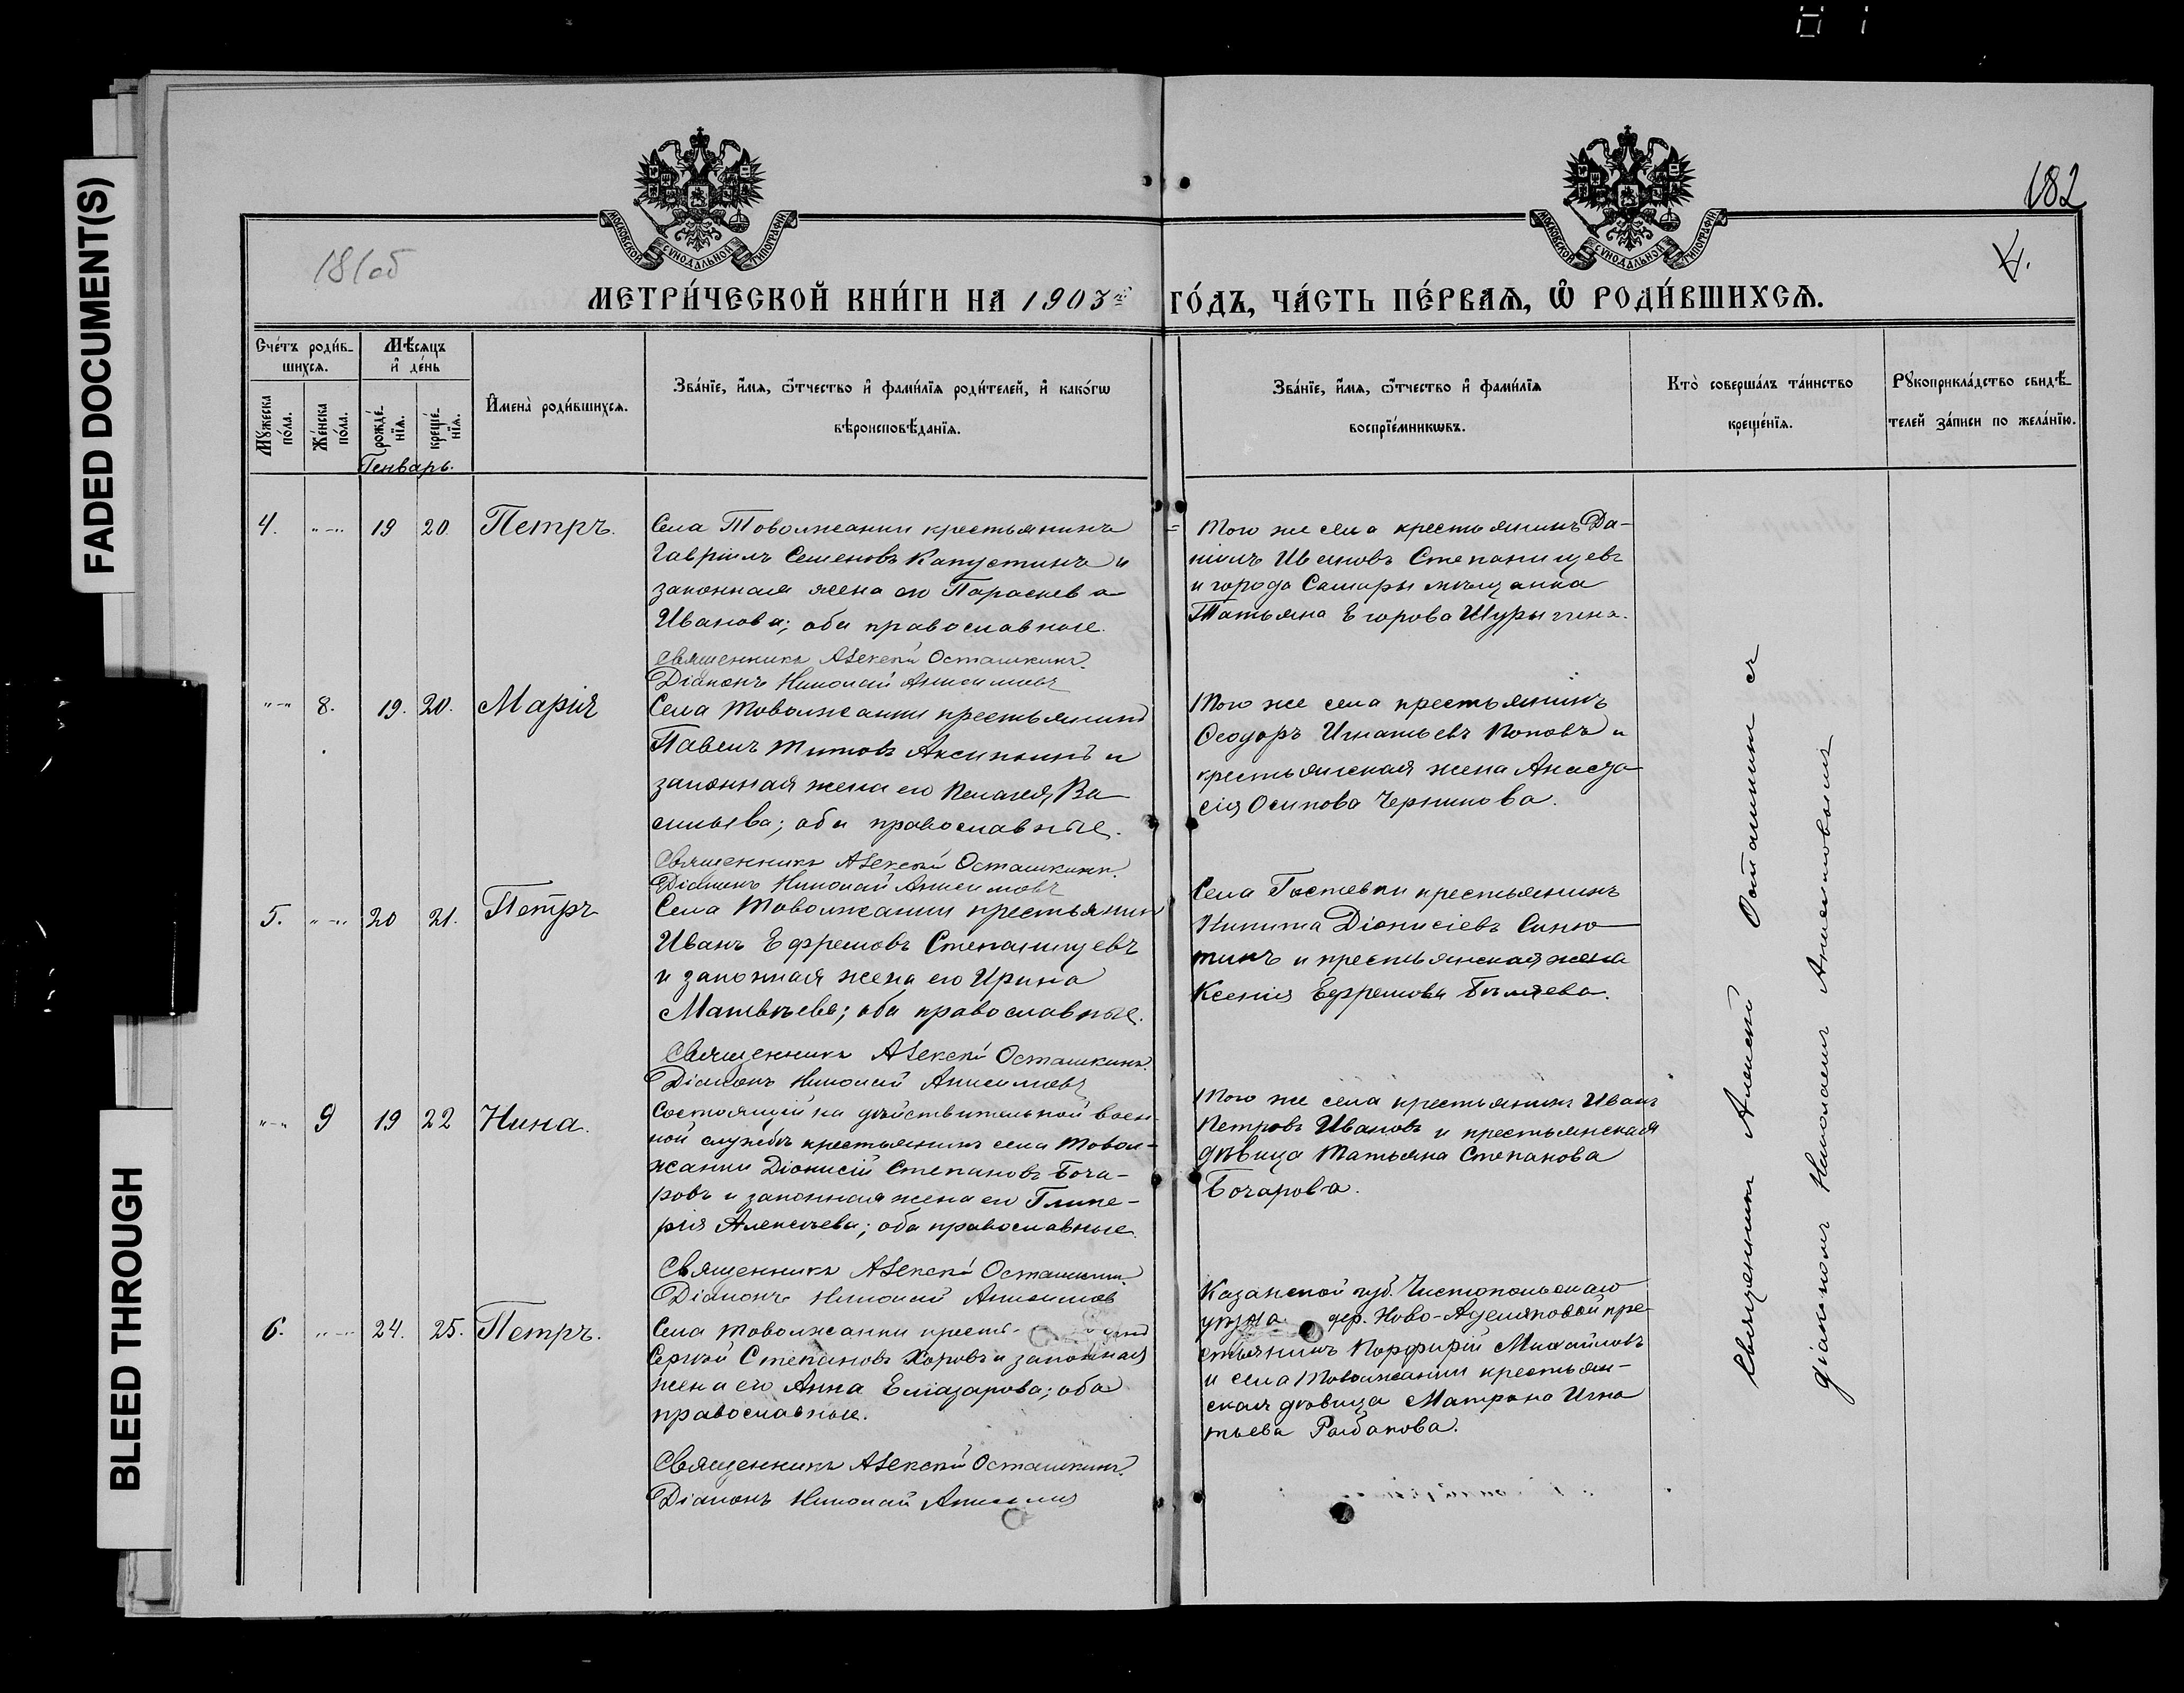 FADED DOCUMENT(S)
BLEED THROUGH
МОСКОВСКОЙ СѴНОДАЛЬНОЙ ТИПОГРАФІИ
МОСКОВСКОЙ СѴНОДАЛЬНОЙ ТИПОГРАФІИ
181об
182
4.
МЕТРИ́ЧЕСКОЙ КНИ́ГИ НА 1903й ГО́ДЪ, ЧА́СТЬ ПЕ́РВАѦ, Ѡ҆ РОДИ́ВШИХСѦ.
Сче́тъ роди́в-
шихсѧ.
Мꙋ́жеска по́ла.
Же́нска по́ла.
Мѣ́сѧцъ
и҆ де́нь
рожде́-
нїѧ.
креще́-
нїѧ.
И҆мена̀ роди́вшихсѧ.
Зва́нїе, и҆́мѧ, ѻ҆́тчество и҆ фами́лїѧ роди́телей, и҆ како́гѡ
вѣроисповѣ́данїѧ.
Зва́нїе, и҆́мѧ, ѻ҆́тчество и҆ фами́лїѧ
воспрїе́мникѡвъ.
Кто̀ соверша́лъ та́инство
креще́нїѧ.
Рꙋкоприкла́дство свидѣ́-
телей за́писи по жела́нїю.
Генварь.
4. „-„ 19 20. Петръ.
Села Товолжанки крестьянинъ
Гавріилъ Семеновъ Капустинъ и
законная жена его Параскева
Иванова; оба православные.
Священникъ Алексѣй Осташкинъ.
Діаконъ Николай Анисимовъ
Того же села крестьянинъ Да-
ніилъ Ивановъ Степанищевъ
и города Самары мѣщанка
Татьяна Егорова Шурыгина.
„-„ 8. 19. 20. Марія
Села Товолжанки крестьянинъ
Павелъ Титовъ Аксинъинъ и
законная жена его Пелагея Ва-
сильева; оба православные.
Священникъ Алексѣй Осташкинъ.
Діаконъ Николай Анисимовъ
Того же села крестьянинъ
Ѳеодоръ Игнатьевъ Поповъ и
крестьянская жена Анаста-
сія Осипова Черникова.
5. „-„ 20 21. Петръ
Села Товолжанки крестьянин
Иванъ Ефремовъ Степанищевъ
и законная жена его Ирина
Матвѣева; оба православные.
Священникъ Алексѣй Осташкинъ.
Діаконъ Николай Анисимовъ
Села Гостевки крестьянинъ
Никита Діонисіевъ Синю-
тинъ и крестьянская жена
Ксенія Ефремова Бѣляева.
„-„ 9 19 22 Нина.
Состоящій на дѣйствительной воен-
ной службѣ крестьянинъ села Товол-
жанки Діонисій Степановъ Боча-
ровъ и законная жена его Глике-
рія Алексѣева; оба православные.
Священникъ Алексѣй Осташкинъ.
Діаконъ Николай Анисимов
Того же села крестьянинъ Иванъ
Петровъ Ивановъ и крестьянская
дѣвица Татьяна Степанова
Бочарова.
6. „-„ 24. 25. Петръ.
Села Товолжанки кресть-
Сергѣй Степановъ Хоровъ и законная
жена его Анна Еліазарова; оба
православные.
Священникъ Алексѣй Осташкинъ.
Діаконъ Николай
Казанской губ. Чистопольскаго
уѣзда дер. Ново-Аделяковой кре-
стьянинъ Порфирій Михайловъ
и села Товолжанки крестьян-
ская дѣвица Матрона Игна-
тьева
Священникъ Алексѣй Осташкинъ съ
діакономъ Николаемъ Анисимовымъ